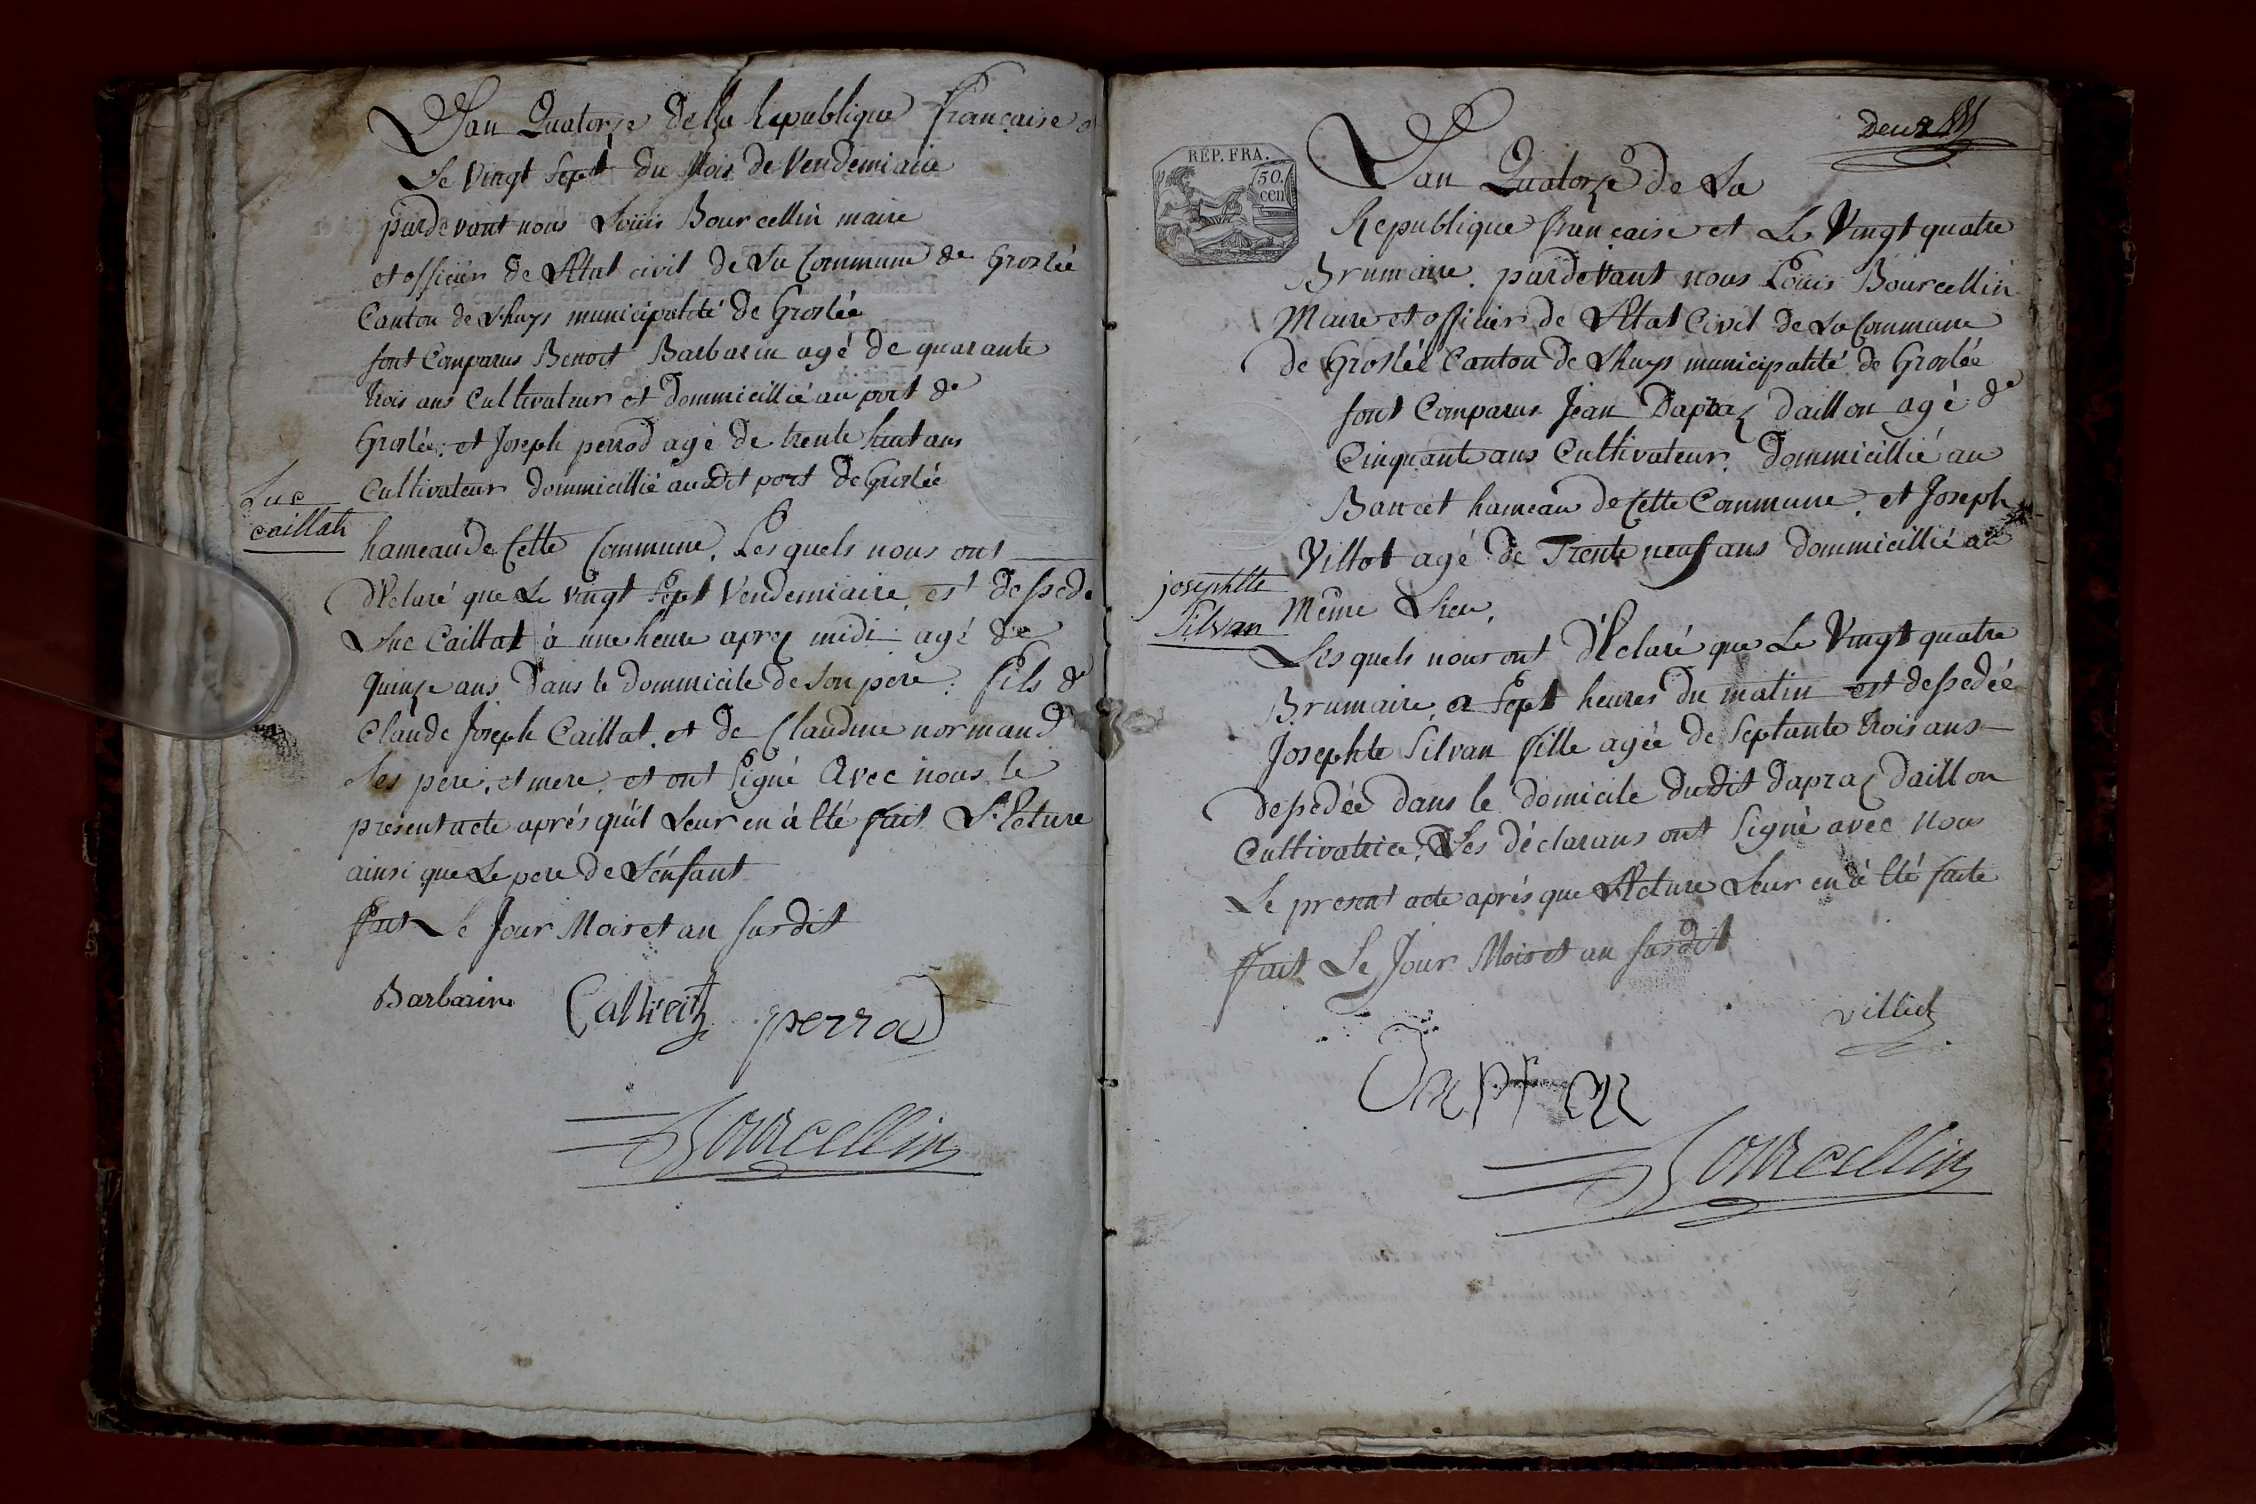 L'an Quatorze De La Republique française
Le Vingt Sept du Mois de Vendemiaire
pardevant nous Louis Bourcellin maire
et officier de L'Etat civil de La Commune de Groslée
Canton de Lhuys municipalité de Groslée
sont Comparus Benoit Barbarin agé de quarante
trois ans Cultivateur et Dommicillié au port de
Groslée; et Joseph perrod agé de trente huit ans
Cultivateur dommicillié audit port de Groslée
Luc
Caillat
hameau de Cette Commune. Les quels nous ont
déclaré que Le vingt Sept Vendemiaire, est dessedé
Luc Caillat à une heure aprez midi agé de
quinze ans Dans le dommicile de Son pere: fils de
Claude Joseph Caillat. et de Claudine normand
Ses pere, et mere, et ont Signé Avec nous le
present acte aprés qu'il Leur en à été fait Lecture
ainsi que Le pere de L'énfant
fait Le Jour Mois et an susdit
Barbarin perrod
Bourcellin
Deux
RÉP. FRA.
50
cen
L'an Quatorze de La
Republique française et Le Vingt quatre
Brumaire. pardevant nous Louis Bourcellin
Maire et officier de L'Etat Civil de La Commune
de Groslée Canton de Lhuys municipalité de Groslée
sont Comparus Jean Dapraz daillon agé de
Cinquante ans Cultivateur. Dommicillié au
hameau de Cette Commune. et Joseph
Villot agé de Trente neuf ans dommicillié au
Même Lieu.
josephte
Silvan
Les quels nous ont déclaré que Le Vingt quatre
Brumaire, a Sept heures du matin est dessedée
Josephte Silvan fille agée de Septante trois ans
dessedée dans le domicile dudit dapraz daillon
Cultivatrice, Les déclarans ont Signé avec nous
Le present acte aprés que Lecture Leur en à été faite
fait Le Jour Mois et an susdit
Bourcellin